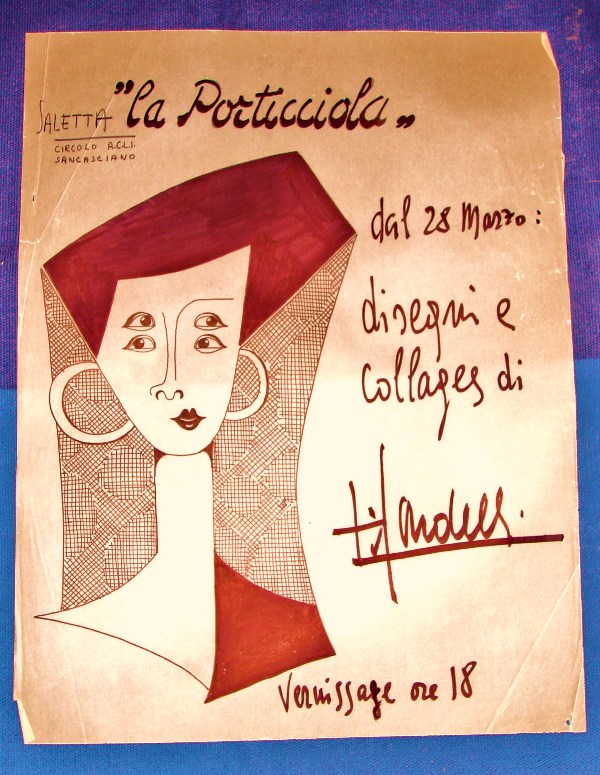 SALETTA "la Porticciola„
CIRCOLO A.C.L.I.
SANCASCIANO
dal 28 Marzo:
disegni e
collages di
Vernissage ore 18